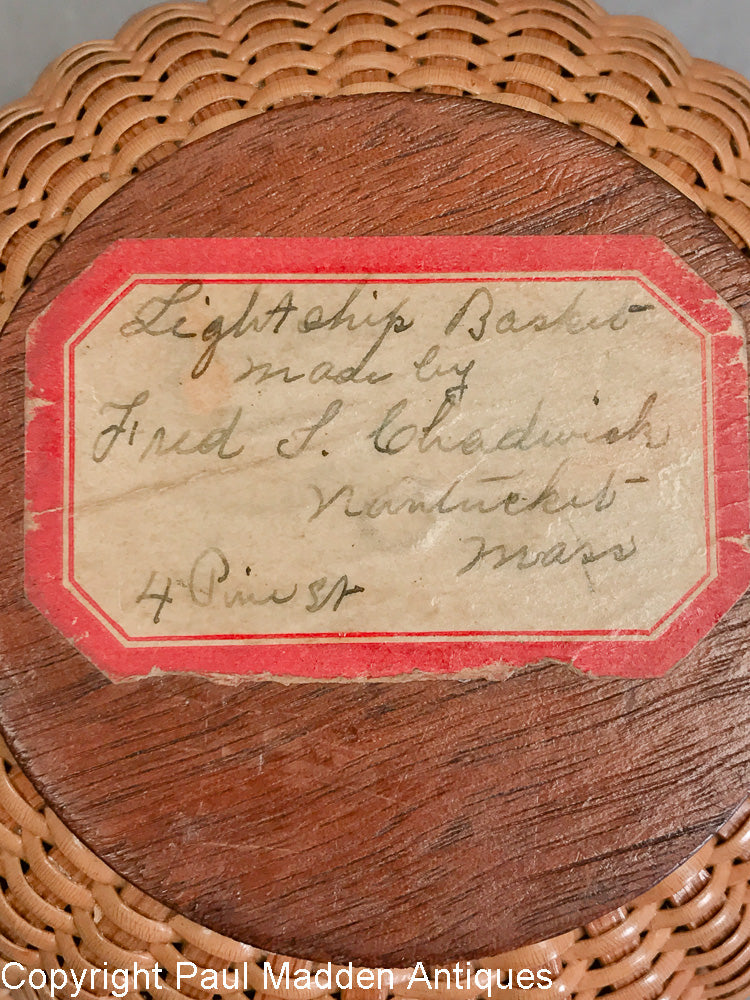 Lightship Basket
made by
Fred S. Chadwick
Nantucket
Mass
4 Pine St
Copyright Paul Madden Antiques